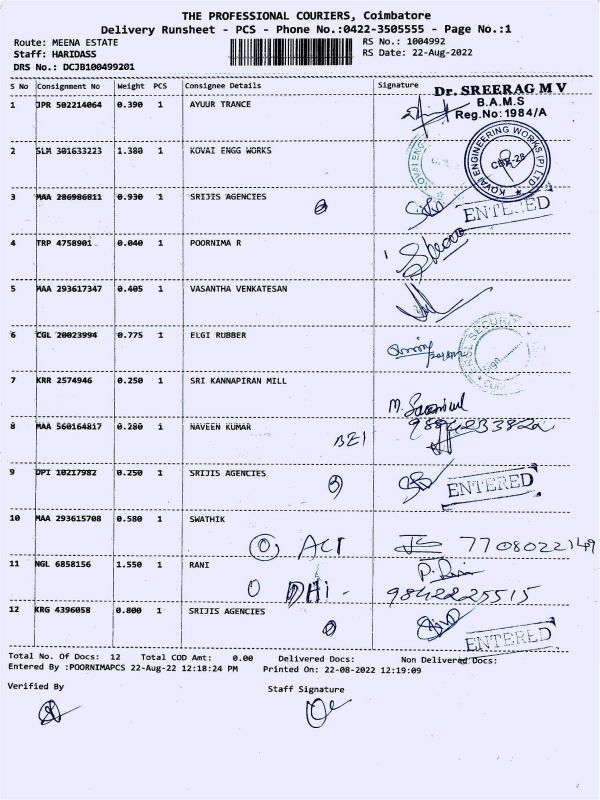 THE PROFESSIONAL COURIERS, Coimbatore
Delivery Runsheet - PCS - Phone No.:0422-3505555 - Page No.:1
Route: MEENA ESTATE RS No.: 1004992
Staff: HARIDASS RS Date: 22-Aug-2022
DRS No.: DCJB100499201
S No Consignment No Weight PCS Consignee Details Signature
Dr. SREERAG M V
B.A.M.S
Reg.No:1984/A
1 JPR 502214064 0.390 1 AYUUR TRANCE
2 SLM 301633223 1.380 1 KOVAI ENGG WORKS
KOVAI ENGINEERING WORKS (P) LTD.
CBE-28
3 MAA 286986811 0.930 1 SRIJIS AGENCIES
ENTERED
4 TRP 4758901 0.040 1 POORNIMA R
5 MAA 293617347 0.405 1 VASANTHA VENKATESAN
6 CGL 20023994 0.775 1 ELGI RUBBER
7 KRR 2574946 0.250 1 SRI KANNAPIRAN MILL
8 MAA 560164817 0.280 1 NAVEEN KUMAR
9 DPI 10217982 0.250 1 SRIJIS AGENCIES
ENTERED
10 MAA 293615708 0.580 1 SWATHIK
11 NGL 6858156 1.550 1 RANI
9842225515
12 KRG 4396058 0.800 1 SRIJIS AGENCIES
ENTERED
Total No. Of Docs: 12 Total COD Amt: 0.00 Delivered Docs: Non Delivered Docs:
Entered By :POORNIMAPCS 22-Aug-22 12:18:24 PM Printed On: 22-08-2022 12:19:09
Verified By Staff Signature